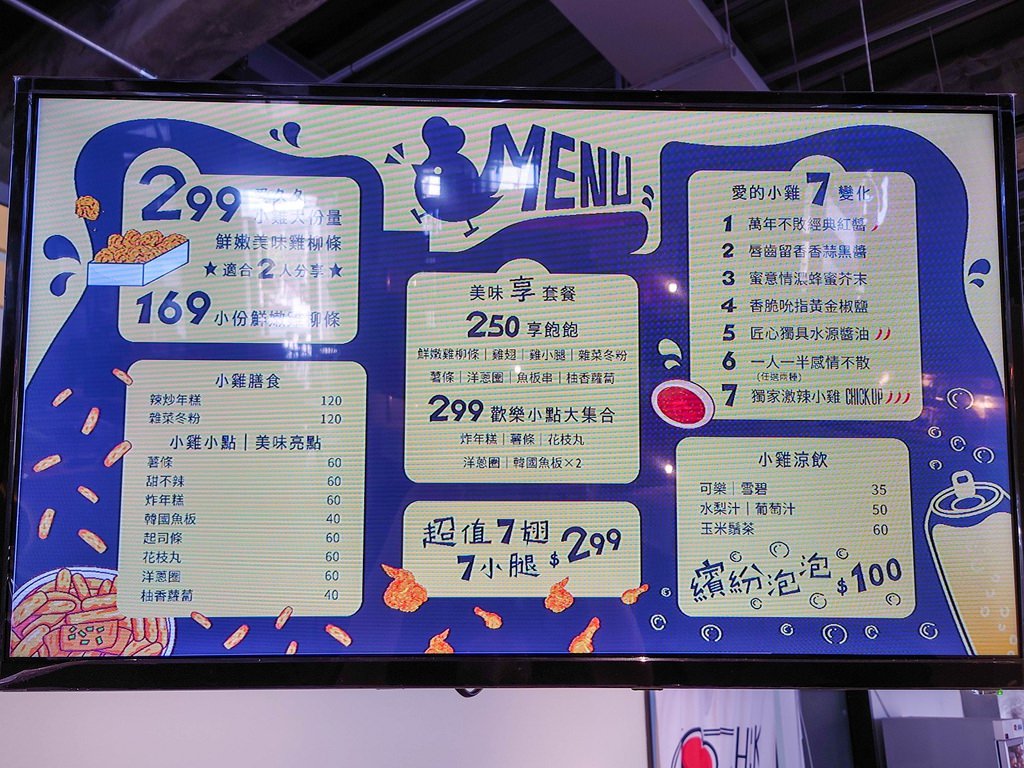 MENU
299
小雞大份量
鮮嫩美味雞柳條
★適合2人分享★
169小份鮮嫩雞柳條
小雞膳食
辣炒年糕 120
雜菜冬粉 120
小雞小點｜美味亮點
薯條 60
甜不辣 60
炸年糕 60
韓國魚板 40
起司條 60
花枝丸 60
洋蔥圈 60
柚香蘿蔔 40
美味享套餐
250享飽飽
鮮嫩雞柳條｜雞翅｜雞小腿｜雜菜冬粉
薯條｜洋蔥圈｜魚板串｜柚香蘿蔔
299歡樂小點大集合
炸年糕｜薯條｜花枝丸
洋蔥圈｜韓國魚板×2
超值7翅
7小腿 $299
愛的小雞7變化
1 萬年不敗經典紅醬
2 唇齒留香香蒜黑醬
3 蜜意情濃蜂蜜芥末
4 香脆吮指黃金椒鹽
5 匠心獨具水源醬油
6 一人一半感情不散
(任選兩種)
7 獨家激辣小雞CHICK UP
小雞涼飲
可樂｜雪碧 35
水梨汁｜葡萄汁 50
玉米鬚茶 60
繽紛泡泡 $100